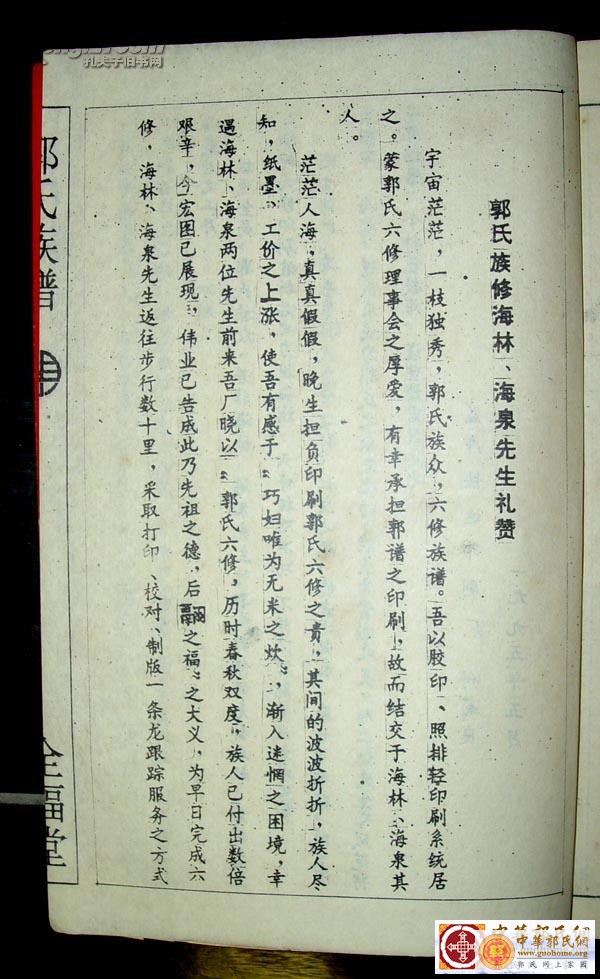 孔夫子旧书网
郭氏族修海林、海泉先生礼赞
宇宙茫茫，一枝独秀，郭氏族众，六修族谱。吾以胶印、照排轻印刷系统居
之。蒙郭氏六修理事会之厚爱，有幸承担郭谱之印刷，故而结交于海林、海泉其
人。
茫茫人海，真真假假，晚生担负印刷郭氏六修之责，其间的波波折折，族人尽
知，纸墨、工价之上涨，使吾有感于“巧妇唯为无米之炊”，渐入迷惘之困境，幸
遇海林、海泉两位先生前来吾厂晓以“郭氏六修，历时春秋双度，族人已付出数倍
艰辛，今宏图已展现，伟业已告成此乃先祖之德，后嗣之福”之大义，为早日完成六
修，海林、海泉先生返往步行数十里，采取打印、校对、制版一条龙跟踪服务之方式
郭氏族谱
全福堂
中华郭氏网
中華郭氏網
www.guohome.org
郭氏网上家園